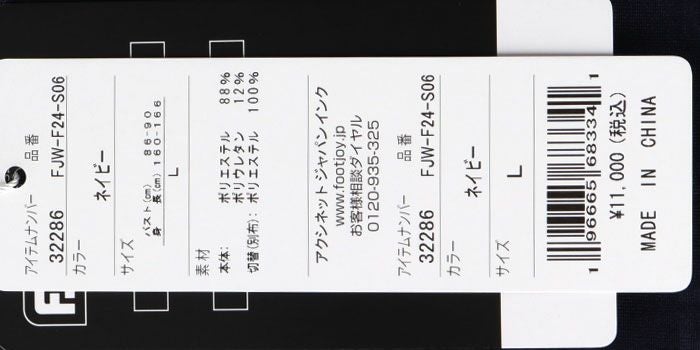 アイテムナンバー 品番
32286 FJW-F24-S06
カラー
ネイビー
サイズ
バスト(cm) 86-90
身 長(cm) 160-166
L
素材
本体: ポリエステル 88%
ポリウレタン 12%
切替(別布): ポリエステル 100%
アクシネット ジャパンインク
www.footjoy.jp
お客様相談ダイヤル
0120-935-325
アイテムナンバー 品番
32286 FJW-F24-S06
カラー
ネイビー
サイズ
L
1 96665 68334 1
¥11,000 (税込)
MADE IN CHINA